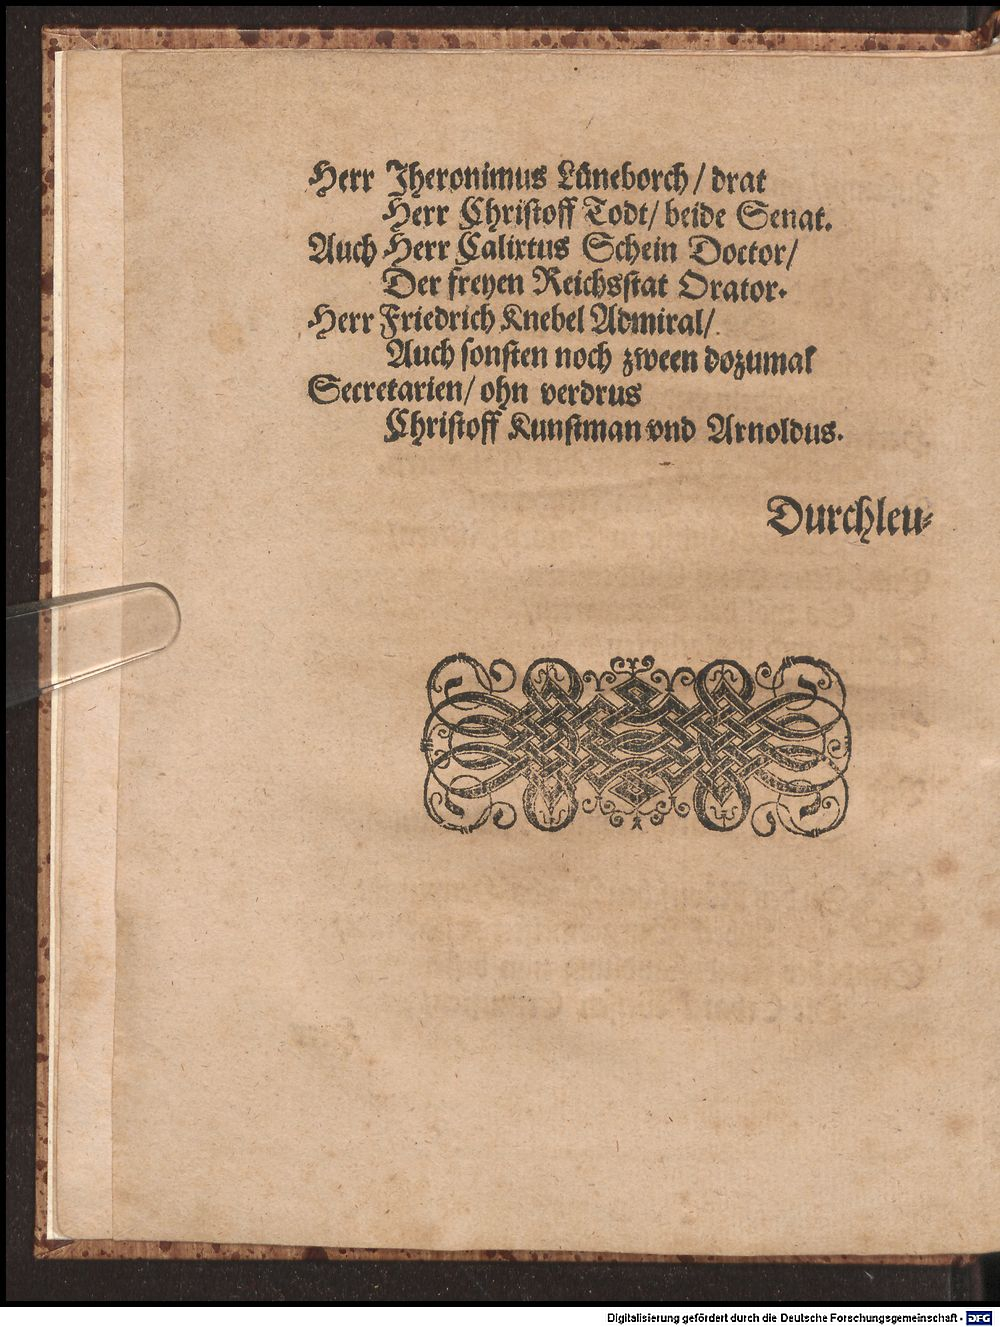 Herr Jheronimus Lüneborch / drat
Herr Christoff Todt / beide Senat.
Auch Herr Calixtus Schein Doctor /
Der freyen Reichsstat Orator.
Herr Friedrich Knebel Admiral /
Auch sonsten noch zween dozumal
Secretarien / ohn verdrus
Christoff Kunstman vnd Arnoldus.
Durchleu⸗
Digitalisierung gefördert durch die Deutsche Forschungsgemeinschaft - DFG